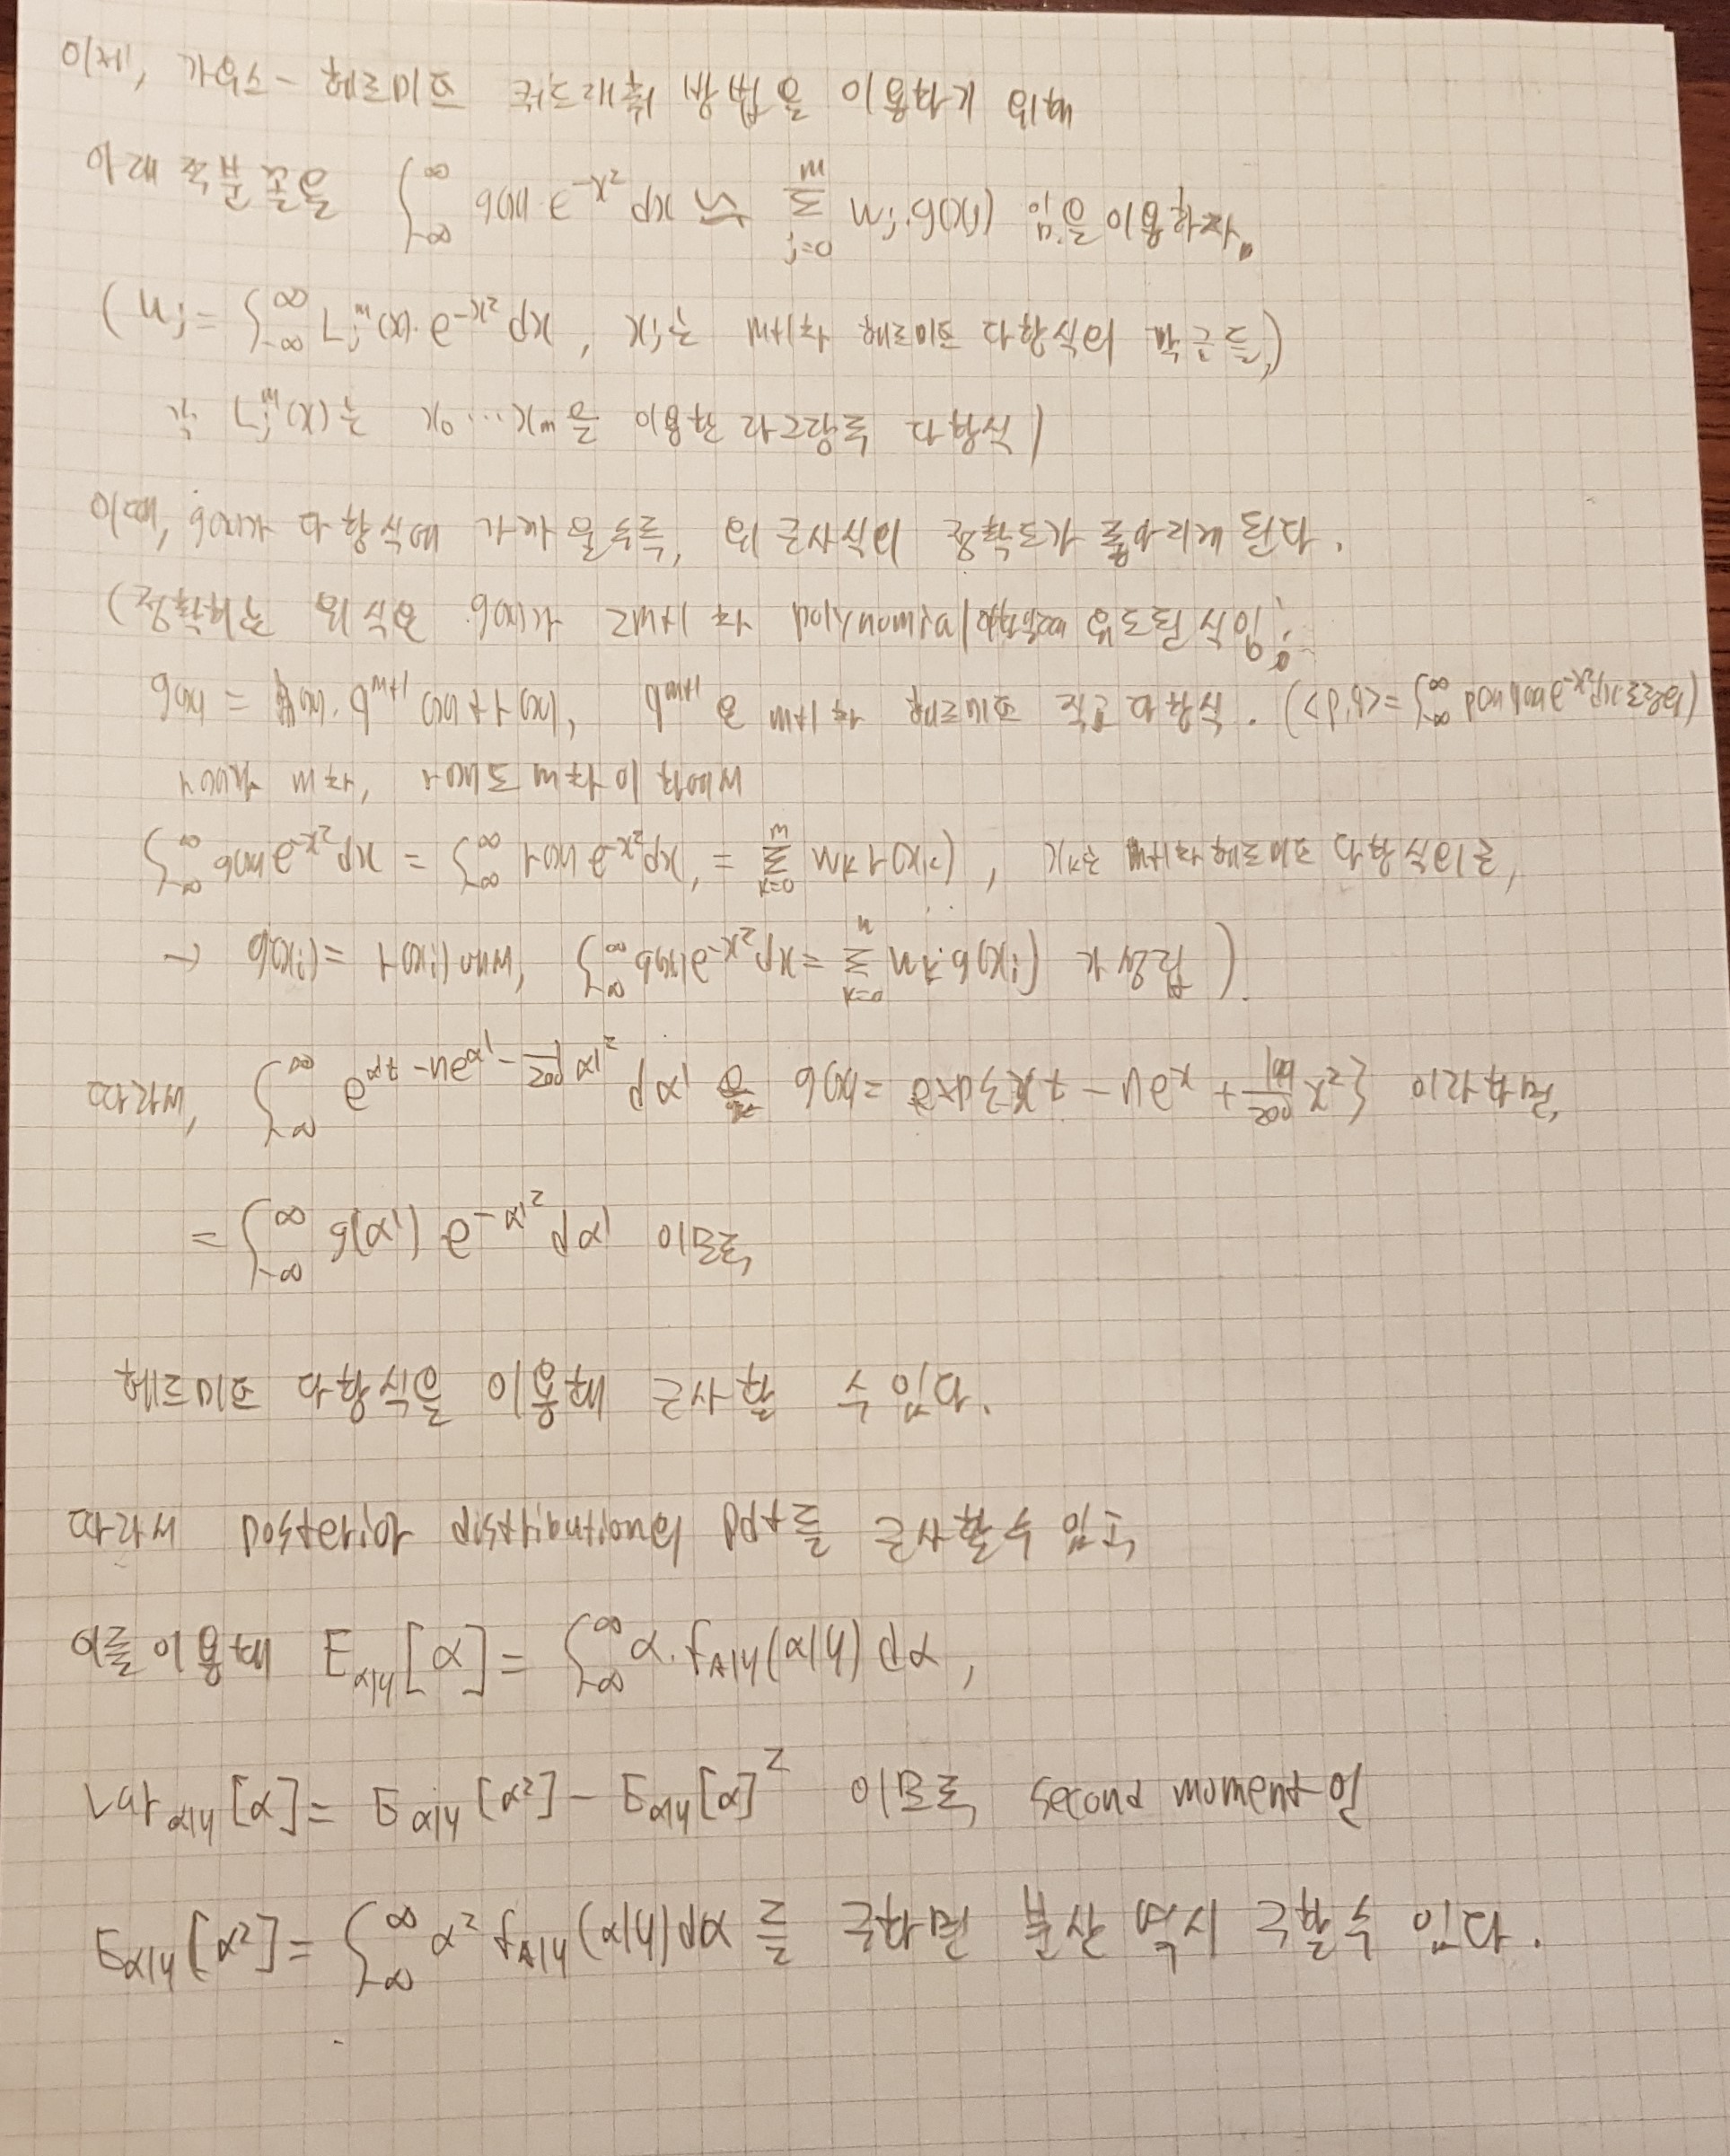 이제, 가우스-헤르미트 쿼드래쳐 방법을 이용하기 위해
아래 적분꼴을 ∫_{-∞}^{∞} g(x) e^{-x²} dx ≈ Σ_{j=0}^{m} w_j·g(x_j) 임을 이용하자.
(w_j = ∫_{-∞}^{∞} L_j^m(x)·e^{-x²} dx, x_j는 m+1차 헤르미트 다항식의 해근들,
L_j^m(x)는 x_0…x_m을 이용한 라그랑주 다항식)
이때, g(x)가 다항식에 가까울수록, 위 근사식의 정확도가 올라가게 된다.
(정확히는 위 식은 g(x)가 2m+1차 polynomial 유도된 식임;
g(x) = ·q_{m+1}(x) + r(x), q_{m+1}은 m+1차 헤르미트 직교다항식. (<p,q> = ∫_{-∞}^{∞} p(x)q(x)e^{-x²}dx
m차, r(x)도 m차 이하여서
∫_{-∞}^{∞} g(x)e^{-x²}dx = ∫_{-∞}^{∞} r(x) e^{-x²}dx, = Σ_{k=0}^{m} w_k r(x_i), x_k는 m+1차 헤르미트 다항식의 근,
→ g(x_i) = r(x_i)여서, ∫_{-∞}^{∞} g(x)e^{-x²}dx = Σ_{k=0}^{m} w_k g(x_i)가 성립)
따라서, ∫_{-∞}^{∞} e^{α't - ne^{α'} - \frac{1}{200}α'²} dα' 을 g(x) = exp{xt - ne^x + \frac{199}{200}x²} 이라하면,
= ∫_{-∞}^{∞} g(α') e^{-α'²} dα' 이므로,
헤르미트 다항식을 이용해 근사할 수 있다.
따라서 posterior distribution의 pdf를 근사할수 있고,
이를 이용해 E_{α|y}[α] = ∫_{-∞}^{∞} α·f_{A|y}(α|y) dα,
Var_{α|y}[α] = E_{α|y}[α²] - E_{α|y}[α]² 이므로, second moment인
E_{α|y}[α²] = ∫_{-∞}^{∞} α² f_{A|y}(α|y)dα 를 구하면 분산 역시 구할수 있다.